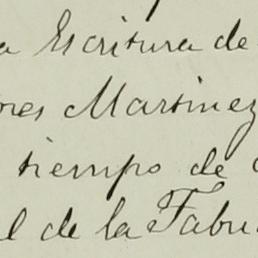 a Escritura de
res Martinez
tiempo de
l de la Fabri